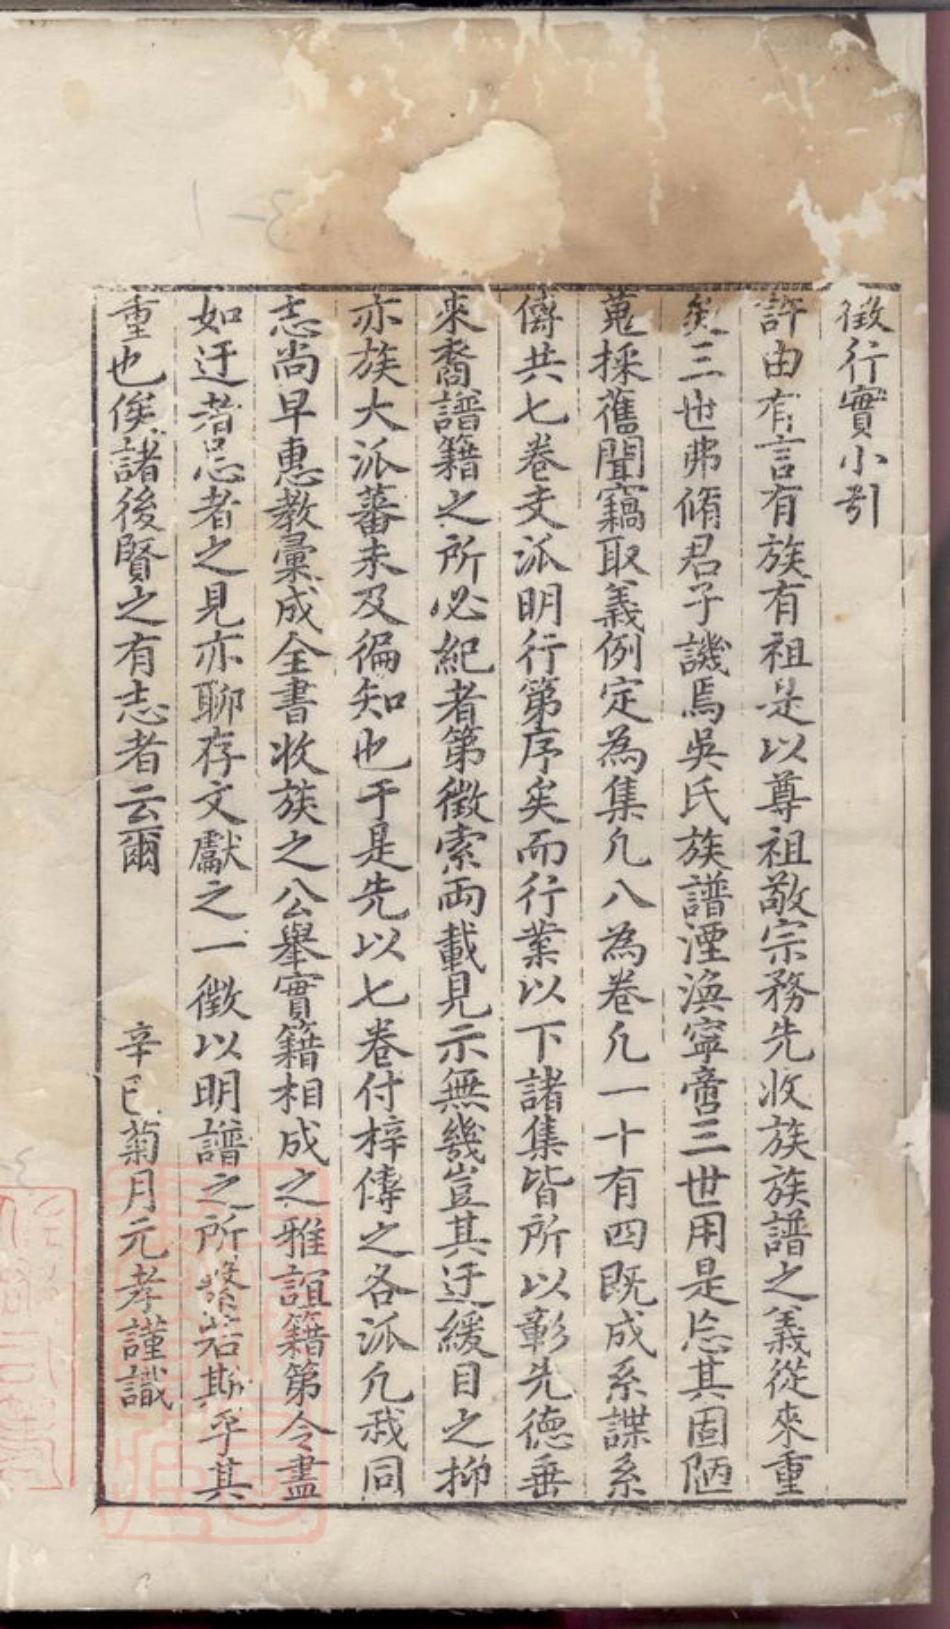 徵行實小引
許由有言有族有祖是以尊祖敬宗務先收族族譜之義從來重
矣三世弗脩君子譏焉吳氏族譜湮渙寧啻三世用是忘其固陋
蒐採舊聞竊取義例定為集凡八為卷凡一十有四既成系諜系
傳共七卷支派明行第序矣而行業以下諸集皆所以彰先德垂
來裔譜籍之所必紀者第徵索兩載見示無幾豈其迂緩目之抑
亦族大派蕃未及徧知也于是先以七卷付梓傳之各派凡我同
志尚早惠教彙成全書收族之公舉實籍相成之雅誼籍第令盡
如迂者之見亦聊存文獻之一徵以明譜之所繫若斯乎其
重也俟諸後賢之有志者云爾 辛巳菊月元孝謹識
3-1